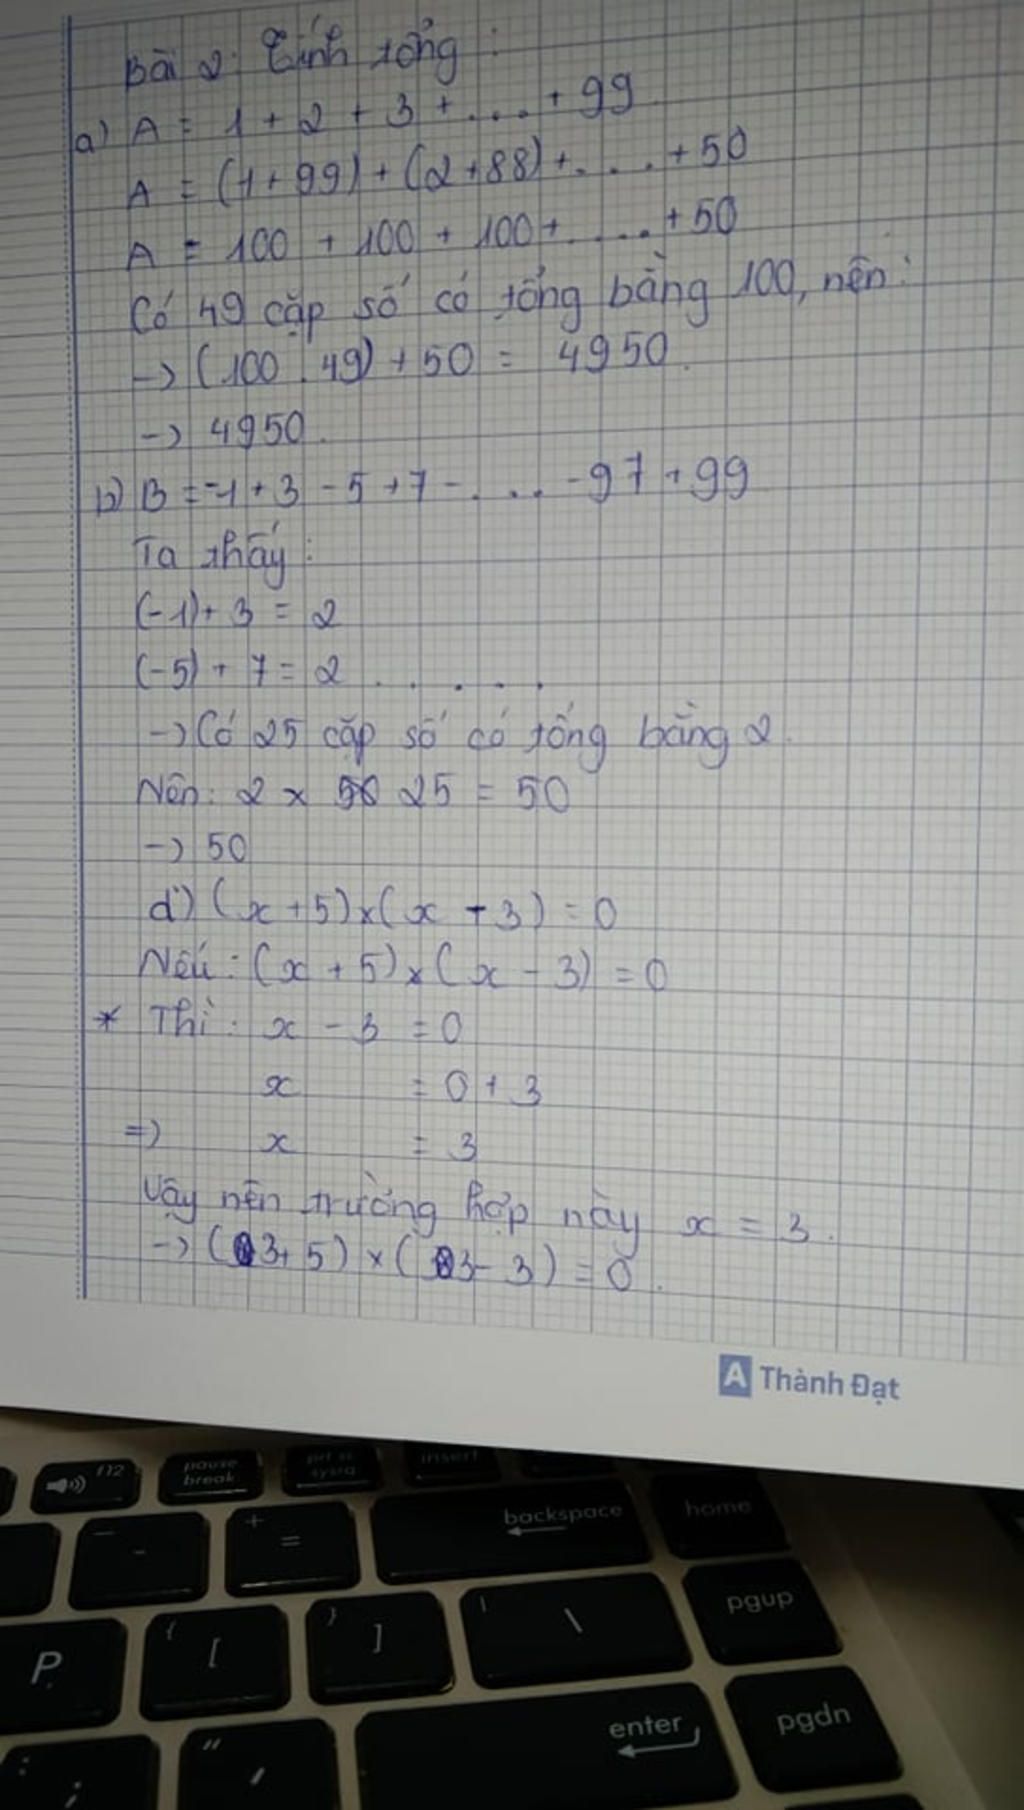 Bài 2: Tính tổng:
a) A = 1 + 2 + 3 + .... + 99
A = (1 + 99) + (2 + 88) + .... + 50
A = 100 + 100 + 100 + ..... + 50
Có 49 cặp số có tổng bằng 100, nên:
-> (100 . 49) + 50 = 4950.
-> 4950.
b) B = -1 + 3 - 5 + 7 - .... - 97 + 99
Ta thấy:
(-1) + 3 = 2
(-5) + 7 = 2 . . . . .
-> Có 25 cặp số có tổng bằng 2.
Nên: 2 x 25 = 50
-> 50
d) (x + 5) x (x - 3) = 0
Nếu: (x + 5) x (x - 3) = 0
* Thì: x - 3 = 0
x = 0 + 3
=> x = 3
Vậy nên trường hợp này x = 3.
-> (3 + 5) x (3 - 3) = 0.
A Thành Đạt
f12
pause break
prt sc sysrq
insert
- -
+ =
backspace
home
P
{ [
} ]
| \
pgup
: ;
" '
enter
pgdn